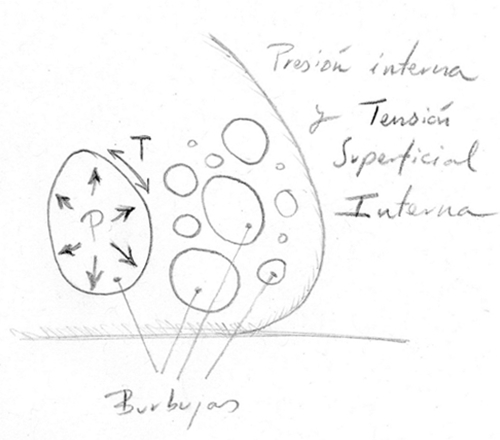 Presión interna
y Tensión
Superficial
Interna
T
P
Burbujas